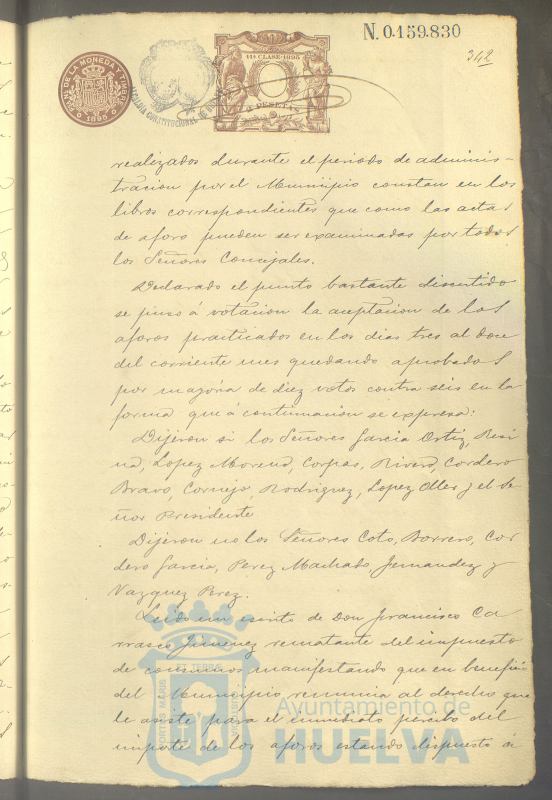 N. 0.159.830
342
FAB. NAL DE LA MONEDA Y TIMBRE
1895
ALCALDIA CONSTITUCIONAL DE
11ª CLASE-1895
PESETAS
realizados durante el periodo de adminis-
tracion por el Municipio constan en los
libros correspondientes que como las actas
de aforo pueden ser examinadas por todos
los Señores Concejales.
Declarado el punto bastante discutido
se puso á votacion la aceptacion de los
aforos practicados en los dias tres al doce
del corriente mes quedando aprobados
por mayoria de diez votos contra seis en la
forma que á continuacion se expresa:
Dijeron si los Señores Garcia Ortiz, Resi
na, Lopez Moreno, Corpas, Rivero, Cordero
Bravo, Cornejo, Rodriguez, Lopez Oller y el Se
ñor Presidente
Dijeron no los Señores Coto, Borrero, Cor
dero Garcia, Perez Machado, Fernandez y
Vazquez Perez.
Leido un escrito de Don Francisco Ca
rrasco Jimenez rematante del impuesto
de consumos manifestando que en beneficio
del Municipio renuncia al derecho que
le asiste para el inmediato percibo del
importe de los aforos estando dispuesto á
PORTUS MARIS ET TERRAE CUSTODIA
Ayuntamiento de
HUELVA